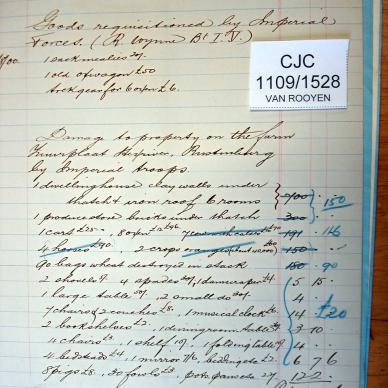 Goods requisitioned by Imperial
Forces. (R. Wynne Bt I. V.)
1900
1 sack mealies 20/-
1 old ox wagon £50
trek gear for 6 oxen £6.
CJC
1109/1528
VAN ROOYEN
Damage to property on the farm
Hexriver, Rustenburg
by Imperial troops.
1 dwellinghouse clay walls under
thatch & iron roof 6 rooms 700 150
1 produce store bricks under thatch 300
1 cart £25, 8 oxen 191 116
4 horses £90 2 crops 150
90 bags wheat destroyed in stack 180 90
2 shovels 4 spades 20/- 1 damscraper 5 15
1 large table 2 small do 4
7 chairs 2 couches £8 1 musical clock 14 £20
2 bookshelves £3 1 diningroom table 3 10
4 chairs 1 shelf 1 folding table 4
4 bedsteads 1 mirror 7/6 6 7 6
8 pigs £8 30 fowls £3 pots pans etc 12